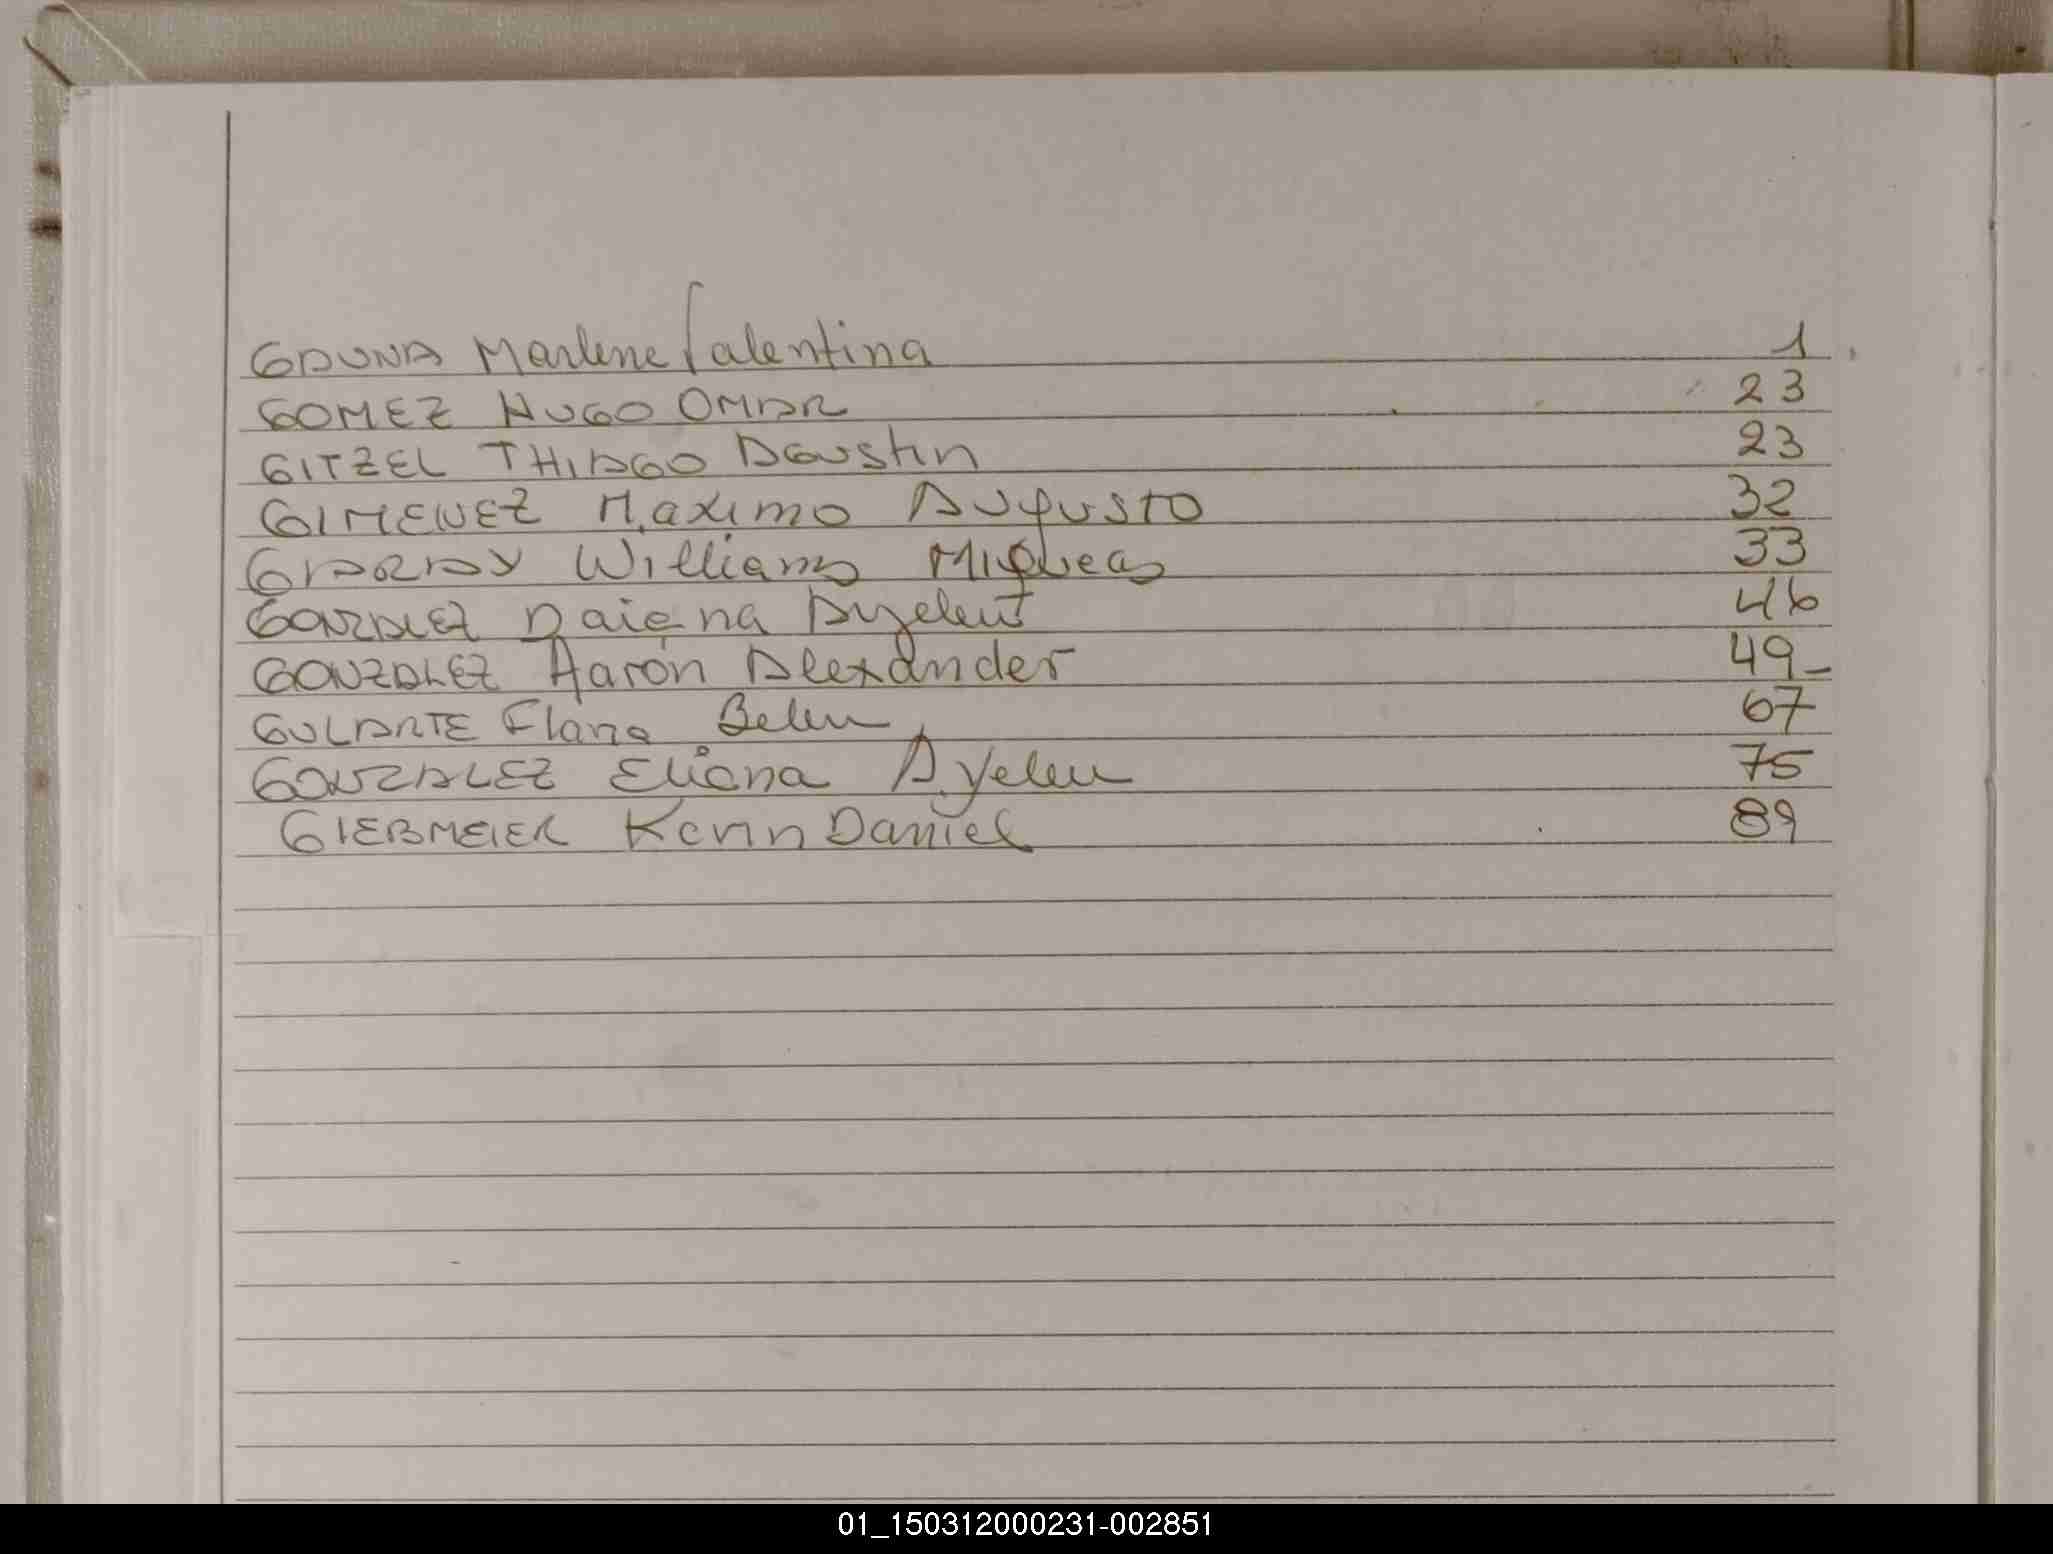 GAUNA Marlene Valentina 1
GOMEZ HUGO OMAR 23
GITZEL THIAGO AGUSTIN 23
GIMENEZ Maximo AUGUSTO 32
GARAY Williams Miqueas 33
GONZALEZ Daiana Ayelen 46
GONZALEZ Aarón Alexander 49-
GULARTE Belen 67
GONZALEZ Eliana Ayelen 75
GIEBMEIER Kevin Daniel 89
01_150312000231-002851